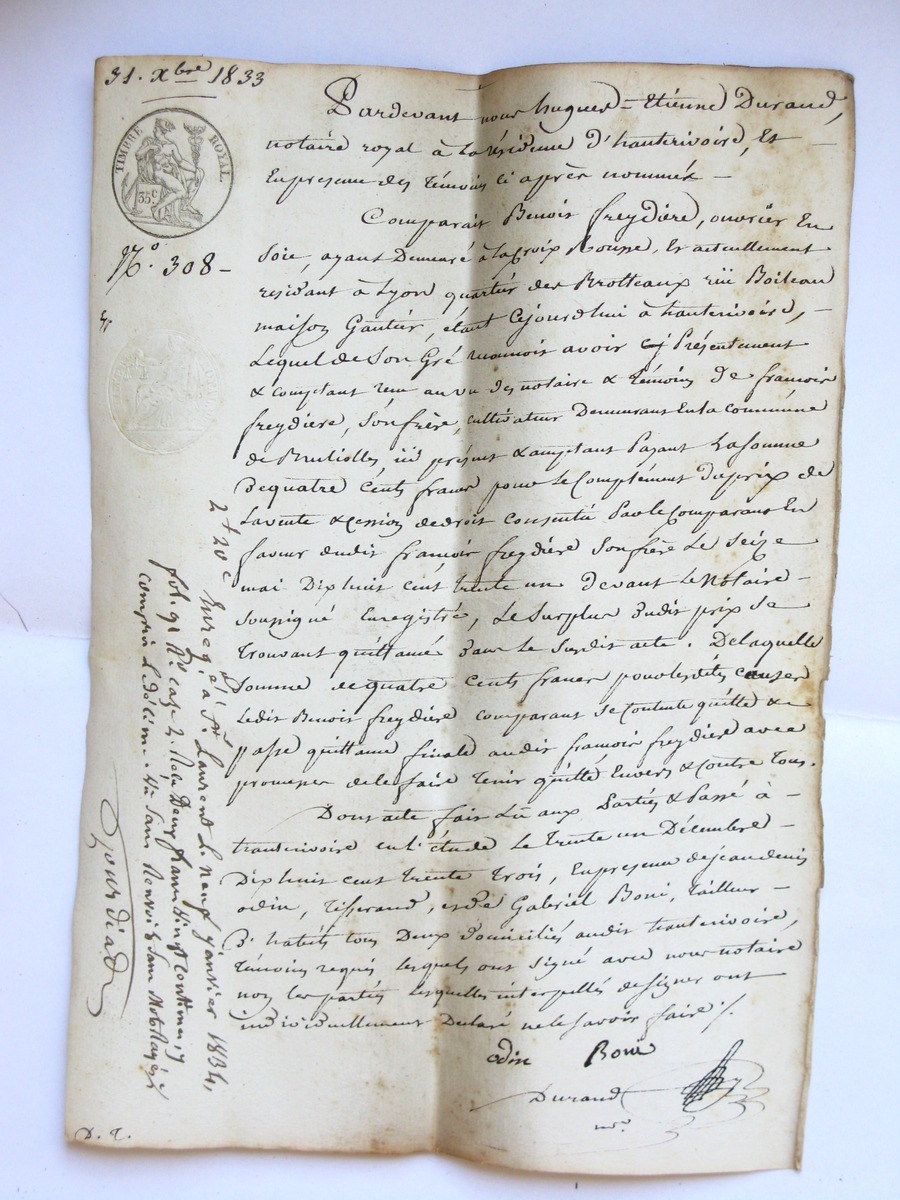 31. Xbre 1833
TIMBRE ROYAL.
35 c
No. 308 -
Pardevant nous hugues - Etienne Durand,
notaire royal à La résidence d'hauterivoire, Et
En presence des témoins ci après nommés -
Comparait Benoit freydiere, ouvrier En
Soie, ayant Demeuré à La Croix Rousse, Et actuellement
residant à Lyon quartier des Brotteaux rüe Boileau
maison Gautier, étant Cejourd'hui à hauterivoire, -
Lequel de Son Gré reconnoit avoir Présentement
& comptant reçu au vu des notaire & témoins De francois
freydiere, Son frère, cultivateur Demeurant En la commune
de Brullolles, ici présent & acceptant Payant La Somme
De quatre Cents francs pour le Complément Du prix de
La vente & Cession de droit Consentie Par le Comparant En
faveur dudit francois freydiere Son frère Le Seize
mai Dix huit cent trente un devant Le Notaire -
Soussigné Enregistré, Le Surplus Dudit prix Se
trouvant quittancé Dans Le Susdit acte. De laquelle
Somme de quatre Cents francs pour lesdites causes
Ledit Benoit freydiere comparant Se Contente quitte &
passe quittance finale audit francois freydiere avec
promesse de le faire tenir quitte Envers & Contre tous.
Dont acte fait Lu aux Parties & Passé à -
hauterivoire en l'étude Le trente un Décembre -
Dix huit cent trente Trois, En presence de jean denis
odin, Tisserand, et de Gabriel Boni, Tailleur -
D'habits tous Deux domiciliés audit hauterivoire,
témoins requis lesquels ont signé avec nous notaire
non les parties lesquelles interpellés de signer ont
individuellement Declaré ne le Savoir faire /.
odin Boni
Durand
nre
2f 20c Enregé à St Laurent Le neuf janvier 1834,
fol. 91 Ro case 2. Reçu Deux francs vingt centimes, y
compris Le décime
Gourdiat
D. T.